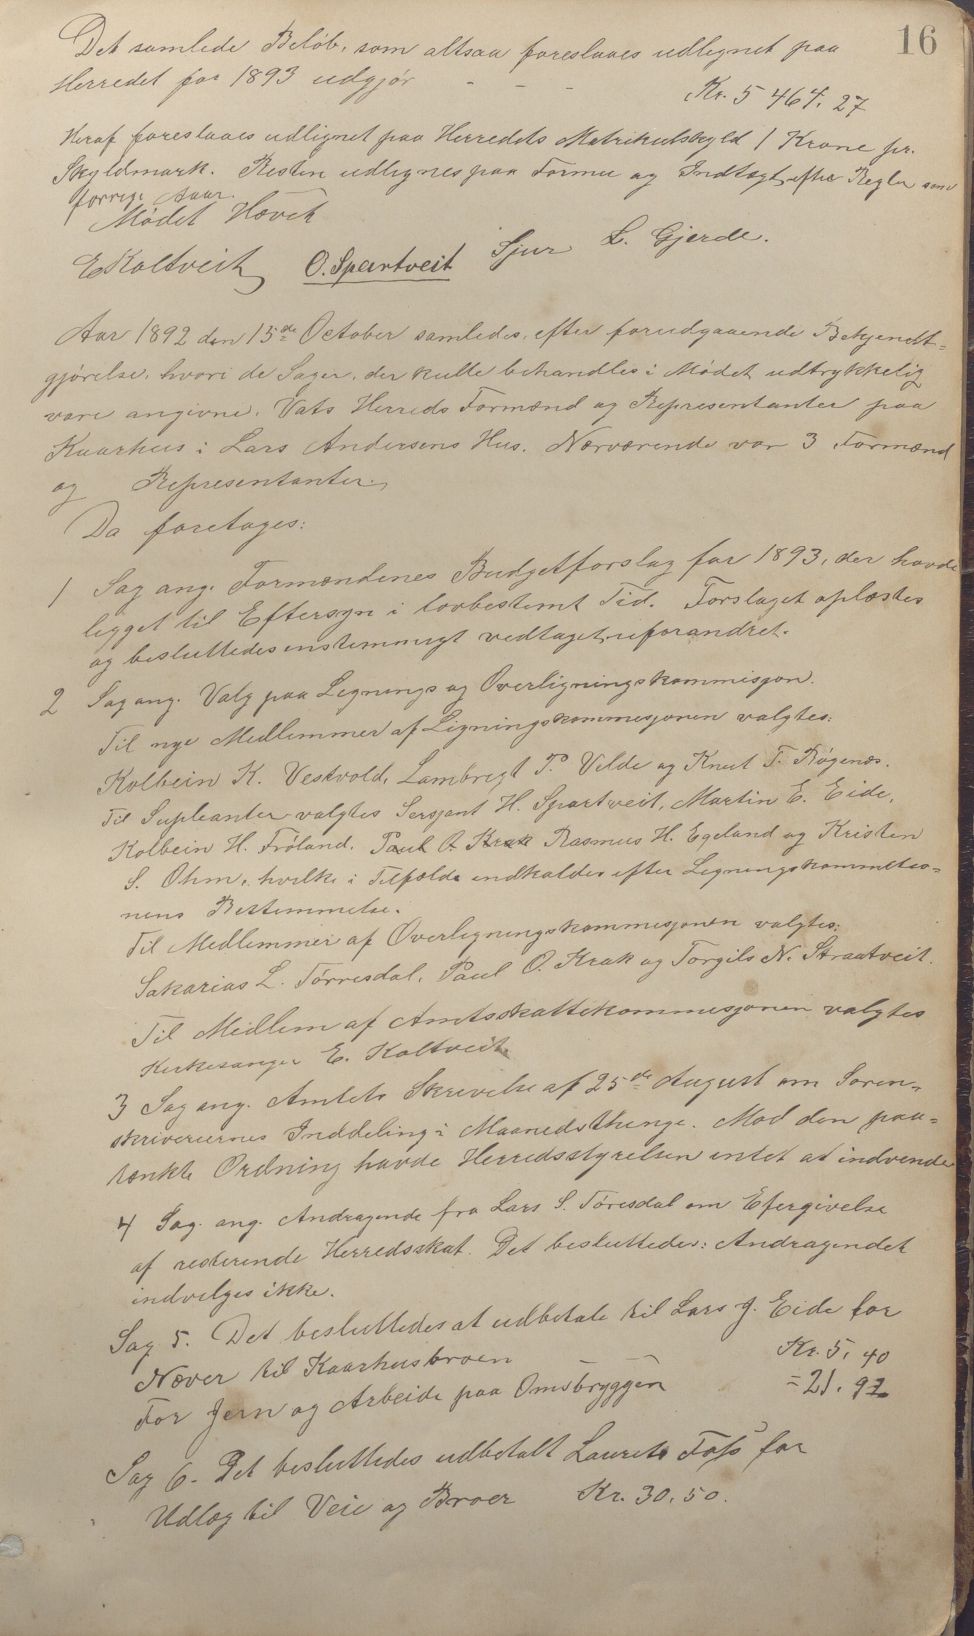 16
Det samlede Beløb, som altsaa foreslaaes udlignet paa
Herredet for 1893 udgjør - - - Kr. 5 464. 27
Heraf foreslaaes udlignet paa Herredets Matrikulskyld 1 Krone pr.
Skyldmark. Resten udlignes paa Formue og Indtægt efter Regler som
forrige Aar.
Mødet Hævet
E Koltveit O. Spartveit Sjur L. Gjerde.
Aar 1892 den 15de October samledes, efter forudgaaende Bekjendt=
gjørelse, hvori de Sager, der kulle behandles i Mødet udtrykkelig
vare angivne, Vats Herreds Formænd og Repræsentanter paa
Kaarhus i Lars Andersens Hus. Nærværende var 3 Formænd
og Repræsentanter.
Da foretages:
1 Sag ang. Formændenes Budgetforslag for 1893, der havde
ligget til Eftersyn i lovbestemt Tid. Forslaget oplæstes
og besluttedes enstemmigt vedtaget uforandret.
2 Sag ang. Valg paa Lignings og Overligningskommisjon.
Til nye Medlemmer af Ligningskommesjonen valgtes:
Kolbein K. Vestvold, Lambregt P. Vilde og Knut T. Røgenæs.
Til Supleanter valgtes Sersjant H. Spartveit, Martin E. Eide,
Kolbein H. Frøland. Paul O. Krak Rasmus H. Egeland og Kristen
S. Ohm, hvilke i Tilfælde indkaldes efter Ligningskommesio=
nens Bestemmelse.
Til Medlemmer af Overligningskommesjonen valgtes:
Sakarias L. Tørresdal, Paul O. Krak og Torgils N. Straatveit.
Til Medlem af Amtsskattekommesjonen valgtes
Kirkesanger E. Koltveit.
3 Sag ang. Amtets Skrivelse af 25de August om Soren=
skriveriernes Inddeling i Maanedsthinge. Mod den paa=
tænkte Ordning havde Herredsstyrelsen intet at indvende
4 Sag. ang. Andragende fra Lars S. Tøresdal om Efergivelse
af resterende Herredsskat. Det besluttedes: Andragendet
indvilges ikke.
Sag 5. Det besluttedes at udbetale til Lars J. Eide for
Næver til Kaarhusbroen Kr. 5, 40
For Jern og Arbeide paa Omsbryggen = 21. 92
Sag 6. Det besluttedes udbetalt Laurits Foss for
Udlæg til Veie og Broer Kr. 30.50.